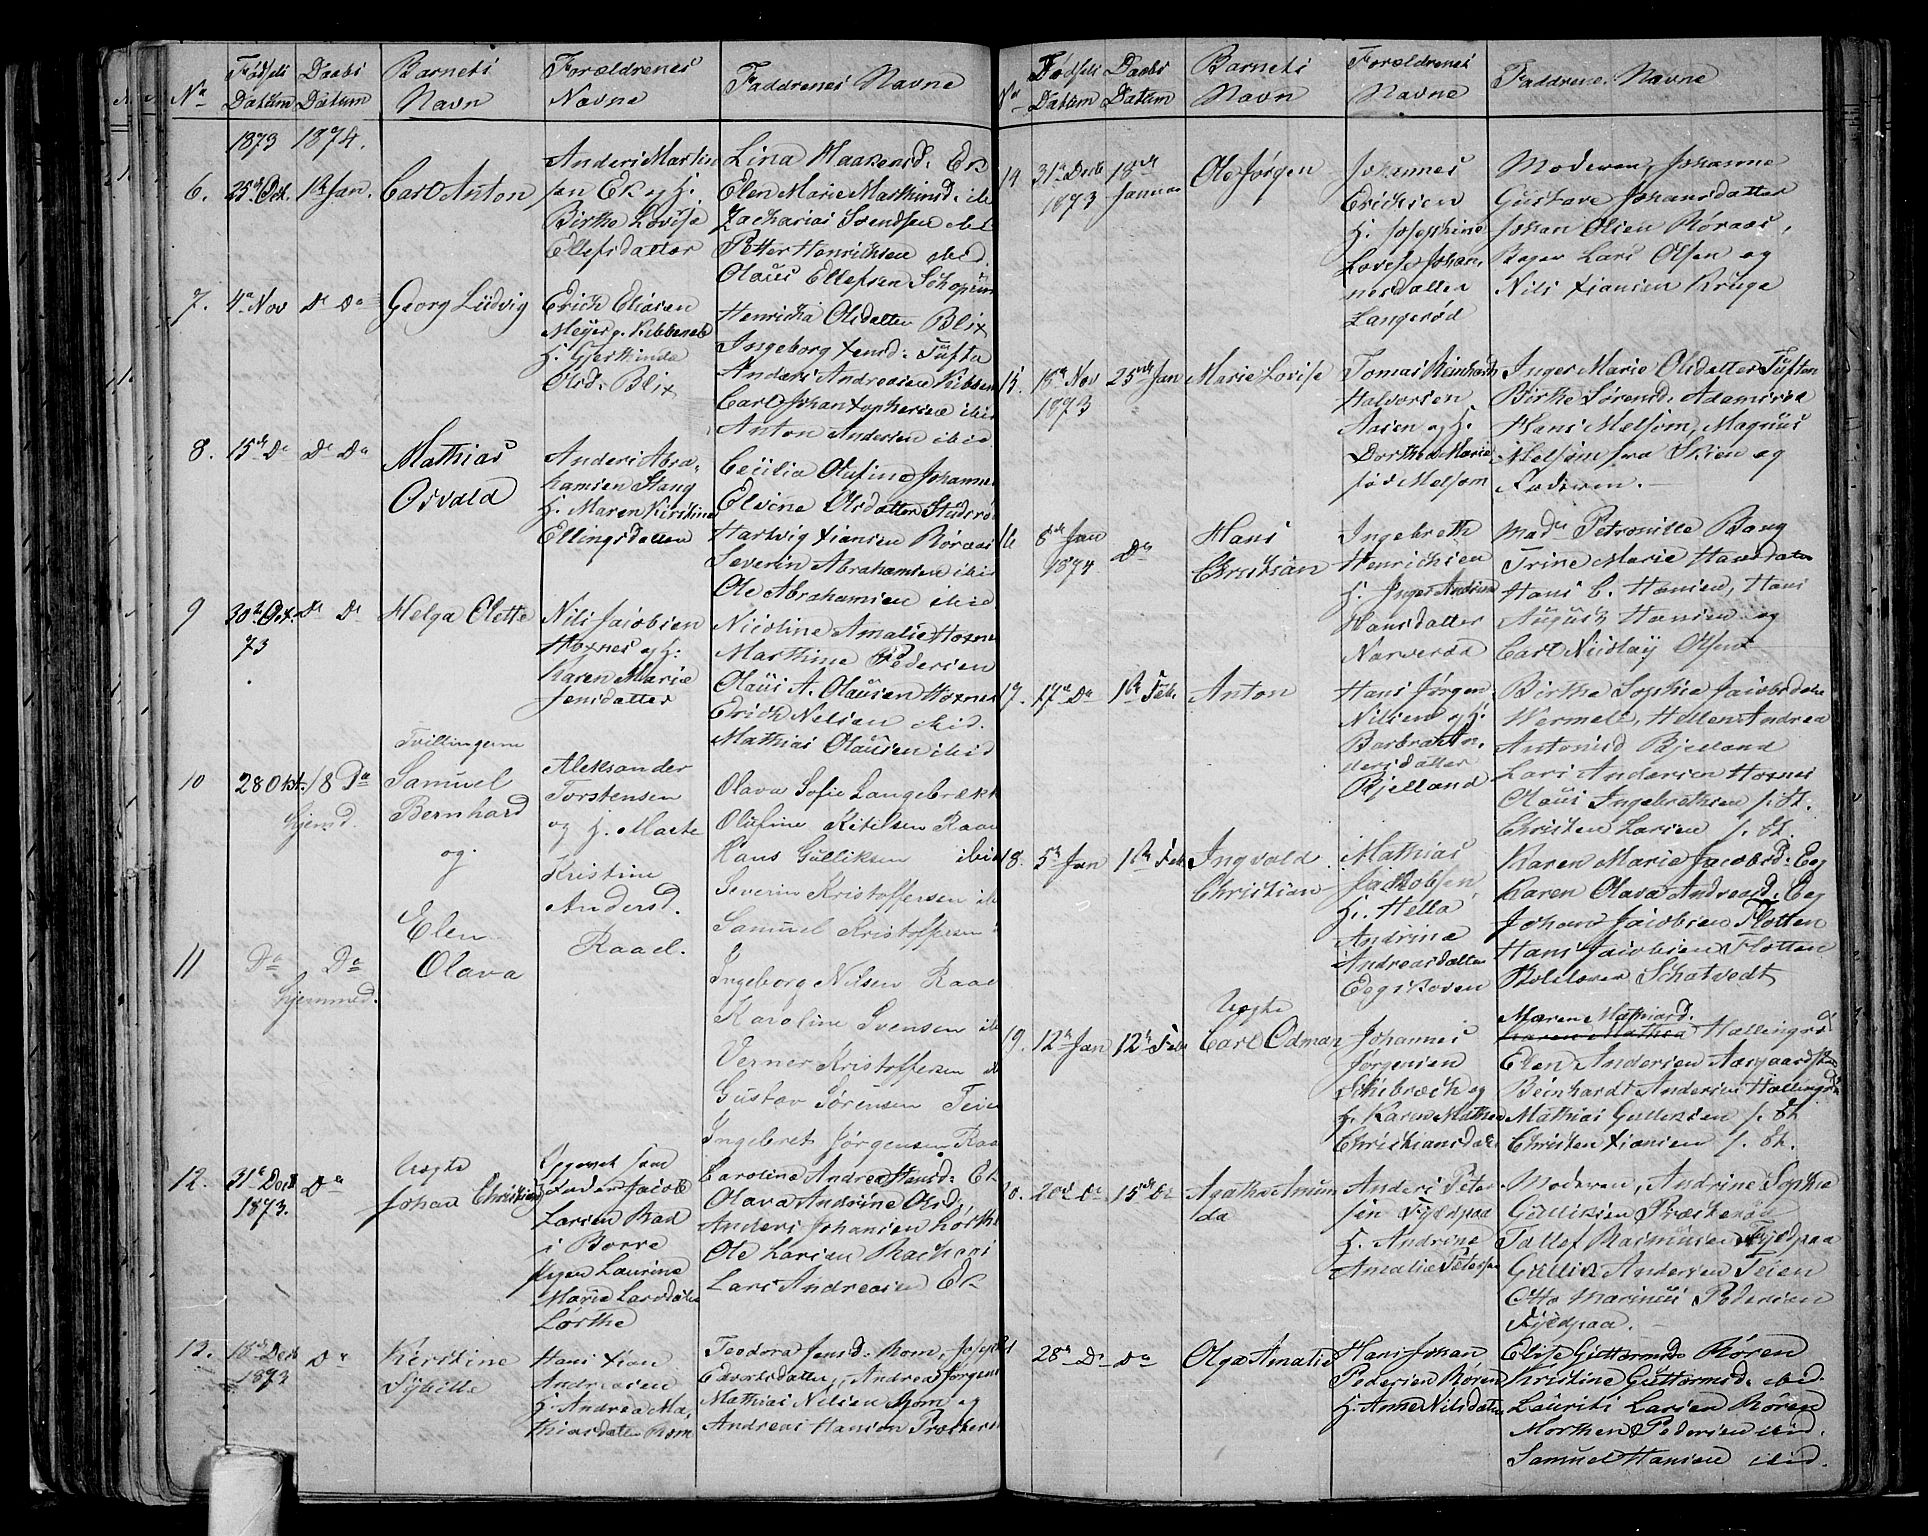 No
Fødsels Datum
Daabs Datum
Barnets Navn
Forældrenes Navne
Faddrenes Navne
1873 1874.
6. 25de Oct. 1ste Jan. Carl Anton
Anders Martin
sen Ek og H.
Birthe Lovise
Ellefsdatter
Lina Haakensd: Ek
Elen Marie Mathisd: ibid
Zacharias Svendsen ibid
Petter Henrichsen ibid.
Olaus Ellefsen Schopum
7. 4de Nov Do Do Georg Ludvig
Erich Eliasen
Meyer g. Kibbenes
H. Gjerthinda
Olsd: Blix
Henricha Olsdatter Blix
Ingeborg Xensd: Tufte
Anders Andreasen Kibsen
Carl Johan Xophersen ibid
Anton Andersen ibid
8. 15de Do Do Do
Mathias
Osvald
Anders Abra-
hamsen Stang
H. Maren Kirstine
Ellingsdatter
Cecilia Olufine Johanne
Elvine Olsdatter Studsrø
Hartvig Xiansen Røraas
Severin Abrahamsen ibid
Ole Abrahamsen ibid
9 30te Oct. 73 Do Do Helga Elette
Nils Jacobsen
Hoxnes og H:
Karen Marie
Jensdatter
Nicoline Amalie Hoxnes
Marthine Pedersen
Olaus A. Olausen Hoxnes
Erich Nilsen ibid.
Mathias Olausen ibid
10 28 Okt. 18 Do
Hjemd.
Tvillingerne
Samuel
Bernhard
og
Aleksander
Torstensen
og H. Marte
Kristine
Andersd.
Raael.
Olava Sofie Langebrekke
Olufine Ketilsen Raael
Hans Gulliksen ibid
Severin Kristoffersen ib
Samuel Kristoffersen
11 Do Do
Hjemmed.
Elen
Olava
Ingeborg Nilsen Raael
Karoline Svensen ib
Verner Kristoffersen ib
Gustav Sørensen Teien
Ingebret Jørgensen Raael
12. 31te Decb 1873. Do
Uægte
Johan Christian
Opgivet som
Fader Jacob
Larsen Rad
i Borre
Pigen Laurine
Marie Larsdatter
Lørthe
Caroline Andrea Hansd: Ek
Olava Andrine Olsd:
Anders Johansen Lørthe
Ole Larsen Backaas
Lars Andreasen Ek
13. 18de Decb 1873 Do
Kirstine
Sybille
Hans Xian
Andreasen
H. Andrea Ma-
thiasdatter Rom
Teodora Jensd: Rom, Josef
Edvardsdatter, Andrea Jørgens
Mathias Nilsen Rom og
Andreas Hansen Præsterø
No
Fødsels Datum
Daabs Datum
Barnets Navn
Forældrenes Navne
Faddrenes Navne
14 31te Decb 1873 18de Januar Ole Jørgen
Johannes
Erichsen
H. Josephine
Lovise Johan-
nesdatter
Langerød
Moderen, Johanne
Gustave Johansdatter
Johan Olsen Røraas,
Bager Lars Olsen og
Nils Xiansen Kruge
15. 15de Nov 1873 25de Jan Marie Lovise
Tomas Reinhard
Halvorsen
Aasen og H.
Dorthea Marie
fød Melsom
Inger Marie Olsdatter Tufton
Birthe Sørensd: Ademsrøa
Hans Melsom, Magnus
Melsom fra Skien og
Faderen.
16 8de Jan 1874 Do
Hans
Christian
Ingebreth
Henrichsen
H. Inger Andrine
Hansdatter
Narverød
Made Petronille Bang
Trine Marie Hansdatter
Hans C. Hansen, Hans
August Hansen og
Carl Nicolay Olsen
17. 17de Do 1ste Feb. Anton
Hans Jørgen
Nilsen og H:
Barbra An-
dersdatter
Bjelland
Birthe Sophie Jacobsdatter
Wermeli, Hellen Andrea
Antonisd Bjelland
Lars Andersen Hoxnes
Olaus Ingebrethsen f. St.
Christen Larsen f. St.
18. 5te Jan 1ste Feb. Ingvald
Christian
Mathias
Jackobsen
H. Hella
Andrina
Andreasdatter
Eegskoven
Karen Marie Jacobsd: Eeg
Karen Olava Andreasd: Eeg
Johan Jacobsen Flotten
Hans Jacobsen Flotten
Schatvedt
19. 12te Jan 12te Feb
Uægte
Carl Odman
Johannes
Jørgensen
Schebræck og
H. Karen Mathea
Christiansdatter
Maren Mathiasd.
Karen Mathea Hallingrød
Eten Andersen Aasgaard
Beinhardt Andersen Hallingrød
Mathias Gullicksen f. St.
Christen Xiansen f. St.
20. 20de Do 15de Do Agathe Amun
da
Anders Peter
sen Fyldpaa
H. Andrine
Amalie Petersen
Moderen, Andrine Sophie
Gulliksen Præsterød
Tollef Rasmusen Fyldpaa
Gullik Andersen Teien
Otto Marinus Pedersen
Fyldpaa.
21 28de Do Do Olga Amalie
Hans Johan
Pedersen Røren
H. Anne Nilsdatter
Elise Guttormsd: Røren
Christine Guttormsd: ibid.
Laurits Larsen Røren
Morthen Pedersen ibid.
Samuel Hansen ibid.